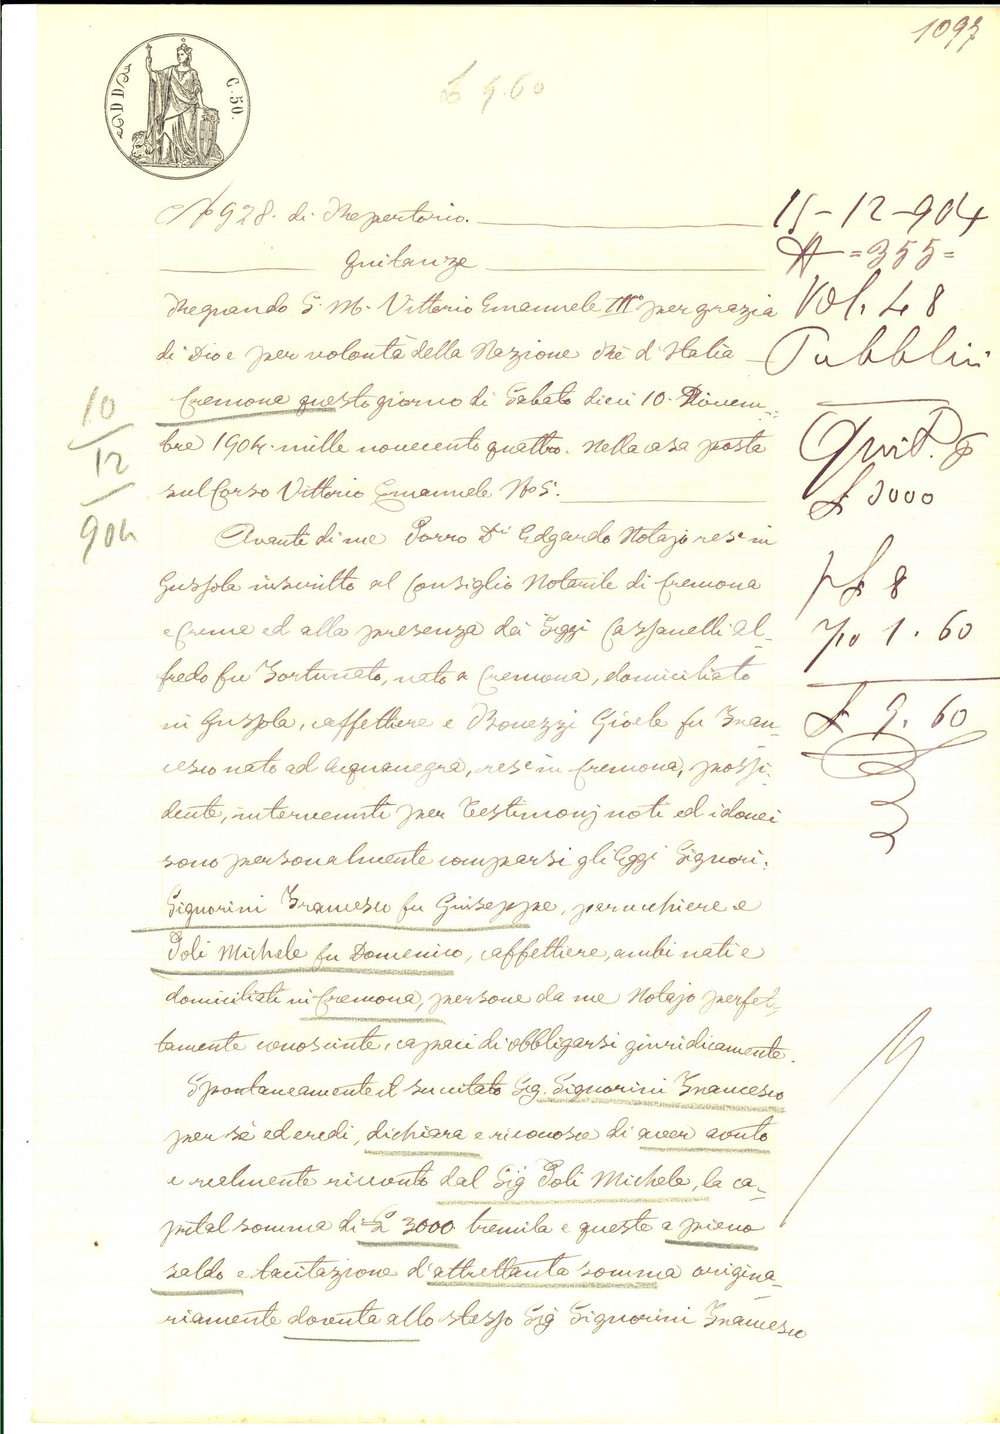 1097
£ 9.60
C. 50.
No 928. di Repertorio.
Quitanze
Regnando S. M. Vittorio Emanuele III° per grazia
di Dio e per volontà della Nazione Rè d'Italia
Cremona questo giorno di Sabato dieci 10. Dicem-
bre 1904. mille novecento quattro. nella casa posta
sul Corso Vittorio Emanuele No 5.
Avanti di me Porro Dr Edgardo Notajo resе in
Gussola inscritto al Consiglio Notarile di Cremona
e Crema ed alla presenza dei Siggi Cassanelli Al-
fredo fu Fortunato, nato a Cremona, domiciliato
in Gussola, caffettiere e Bonezzi Gioele fu Fran-
cesco nato ad Acquanegra, rese in Cremona, possi-
dente, intervenuti per testimonj noti ed idonei
sono personalmente comparsi gli Eggi Signori:
Signorini Francesco fu Giuseppe, perucchiere e
Poli Michele fu Domenico, caffettiere, ambi nati e
domiciliati in Cremona, persone da me Notajo perfet-
tamente conosciute, capaci di obbligarsi giuridicamente.
Spontaneamente il sucitato Sig. Signorini Francesco
per sè ed eredi, dichiara e riconosce di aver avuto
e realmente ricevuto dal Sig Poli Michele, la ca-
pital somma di £ 3000 tremila e queste a pieno
saldo e tacitazione d'altrettanta somma origina-
riamente dovuta allo stesso Sig Signorini Francesco
10
12
904
15-12-904
A = 355 =
Vol. 48
Pubblici
Quit.
£ 3000
pf 8
1. 60
£ 9. 60